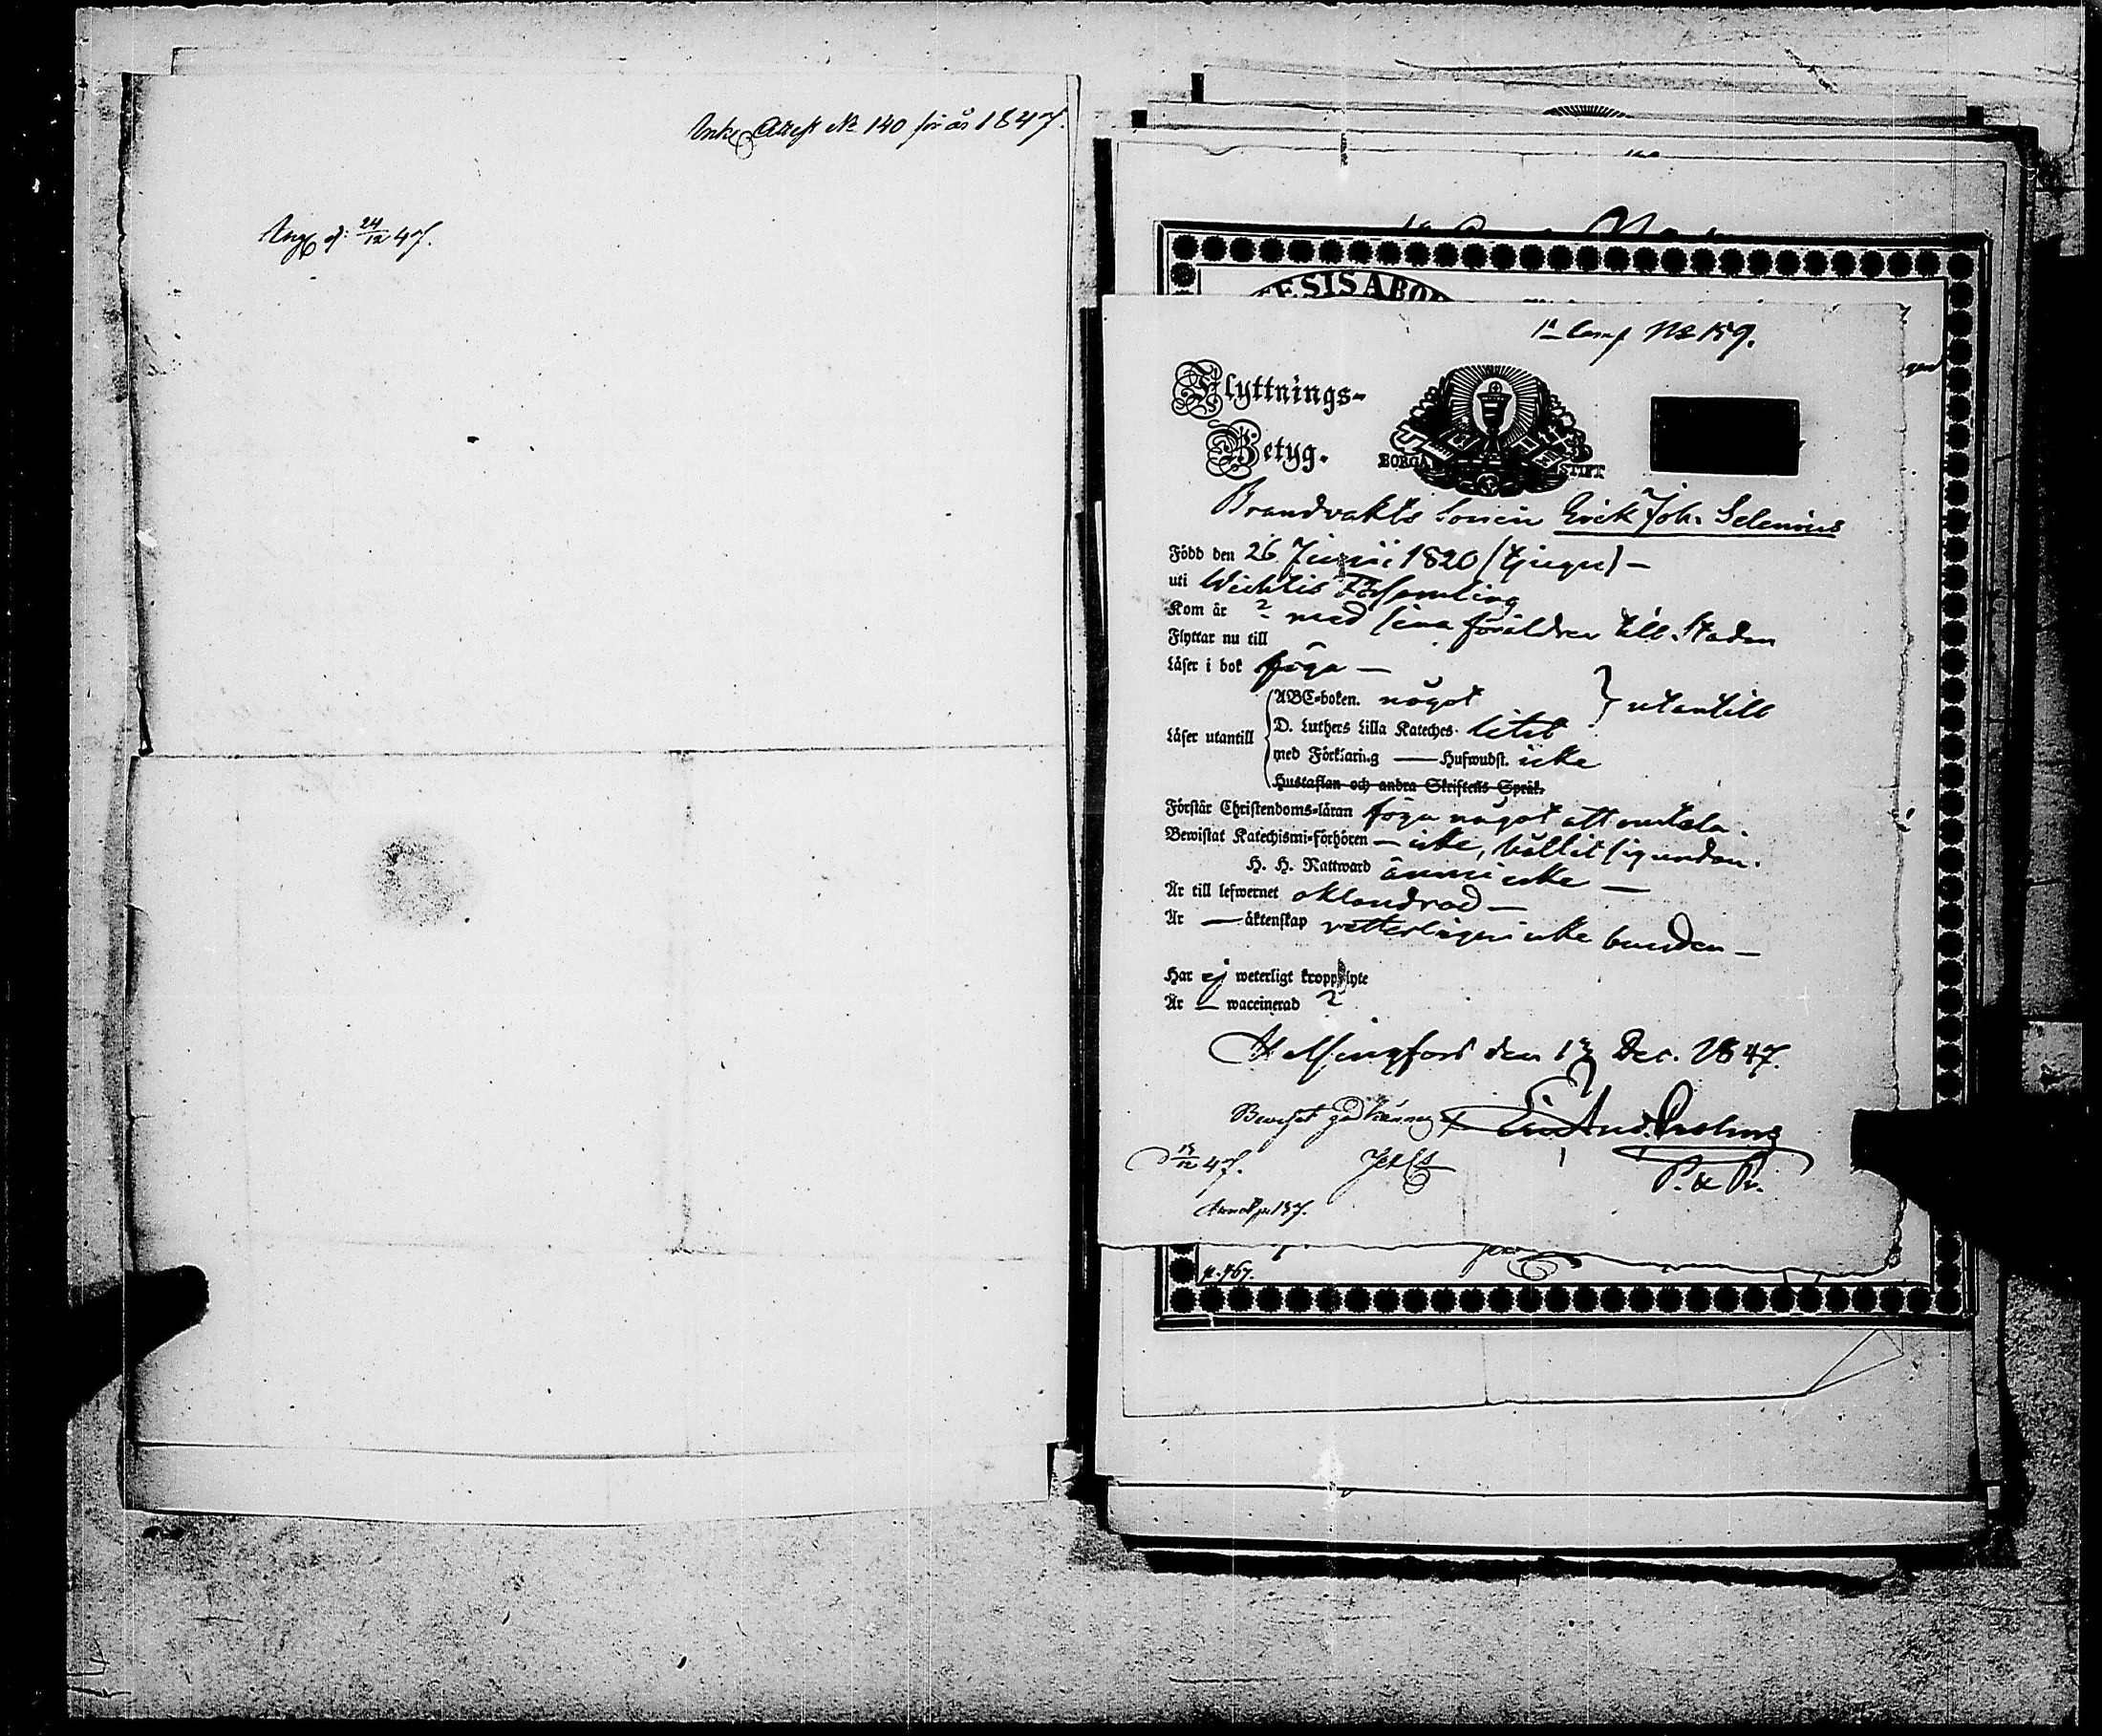 Attest № 140 för år 1847.
24/12 47.
1a Comp № 159.
Flyttnings-
Betyg.
BORGÅ STIFT
Brandvakts sonen Erick Joh. Selenius
Född den 26 Junii 1820 (tjugu) —
uti Wichtis Församling
Kom år ? med sina föräldrar till Staden
Flyttar nu till
Läser i bok föga —
Läser utantill
ABC-boken. något } utantill
D. Luthers Lilla Kateches. litet
med Förklaring — Hufwudst. icke
Hustaflan och andra Skriftens Språk.
Förstår Christendoms-läran föga något att omtala.
Bewistat Katechismi-förhören — icke, hållit sig undan.
H. H. Nattward ännu icke —
Är till lefwernet oklandrad —
Är — äktenskap veterligen icke bunden —
Har ej weterligt kroppslyte
Är — waccinerad ?
Helsingfors den 13 Dec. 1847.
Beviset
P. & Pr.
12 47.
137.
p. 767.